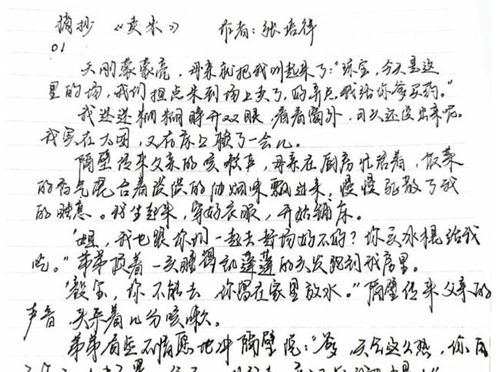 摘抄 《卖米》 作者：张培祥
01
天刚蒙蒙亮，母亲就把我叫起来了："琼宝，今天是这
里的场，我们担点米到场上卖了，好弄点钱给你爹买药。"
我迷迷糊糊睁开双眼，看看窗外，日头还没出来呢。
我实在太困，又在床上躺了一会儿。
隔壁传来父亲的咳嗽声，母亲在厨房忙活着，饭菜
的香气混合着淡淡的油烟味飘过来，慢慢驱散了我
的睡意。我坐起来，穿好衣服，开始铺床。
"姐，我也跟你们一起去赶场好不好？你买冰棍给我
吃。"弟弟顶着一头睡得乱蓬蓬的头发跑到我房里。
"毅宝，你不能去，你留在家里放水。"隔壁传来父亲的
声音，夹杂着几分咳嗽。
弟弟有些不情愿地冲隔壁说："爹，天气这么热，你自